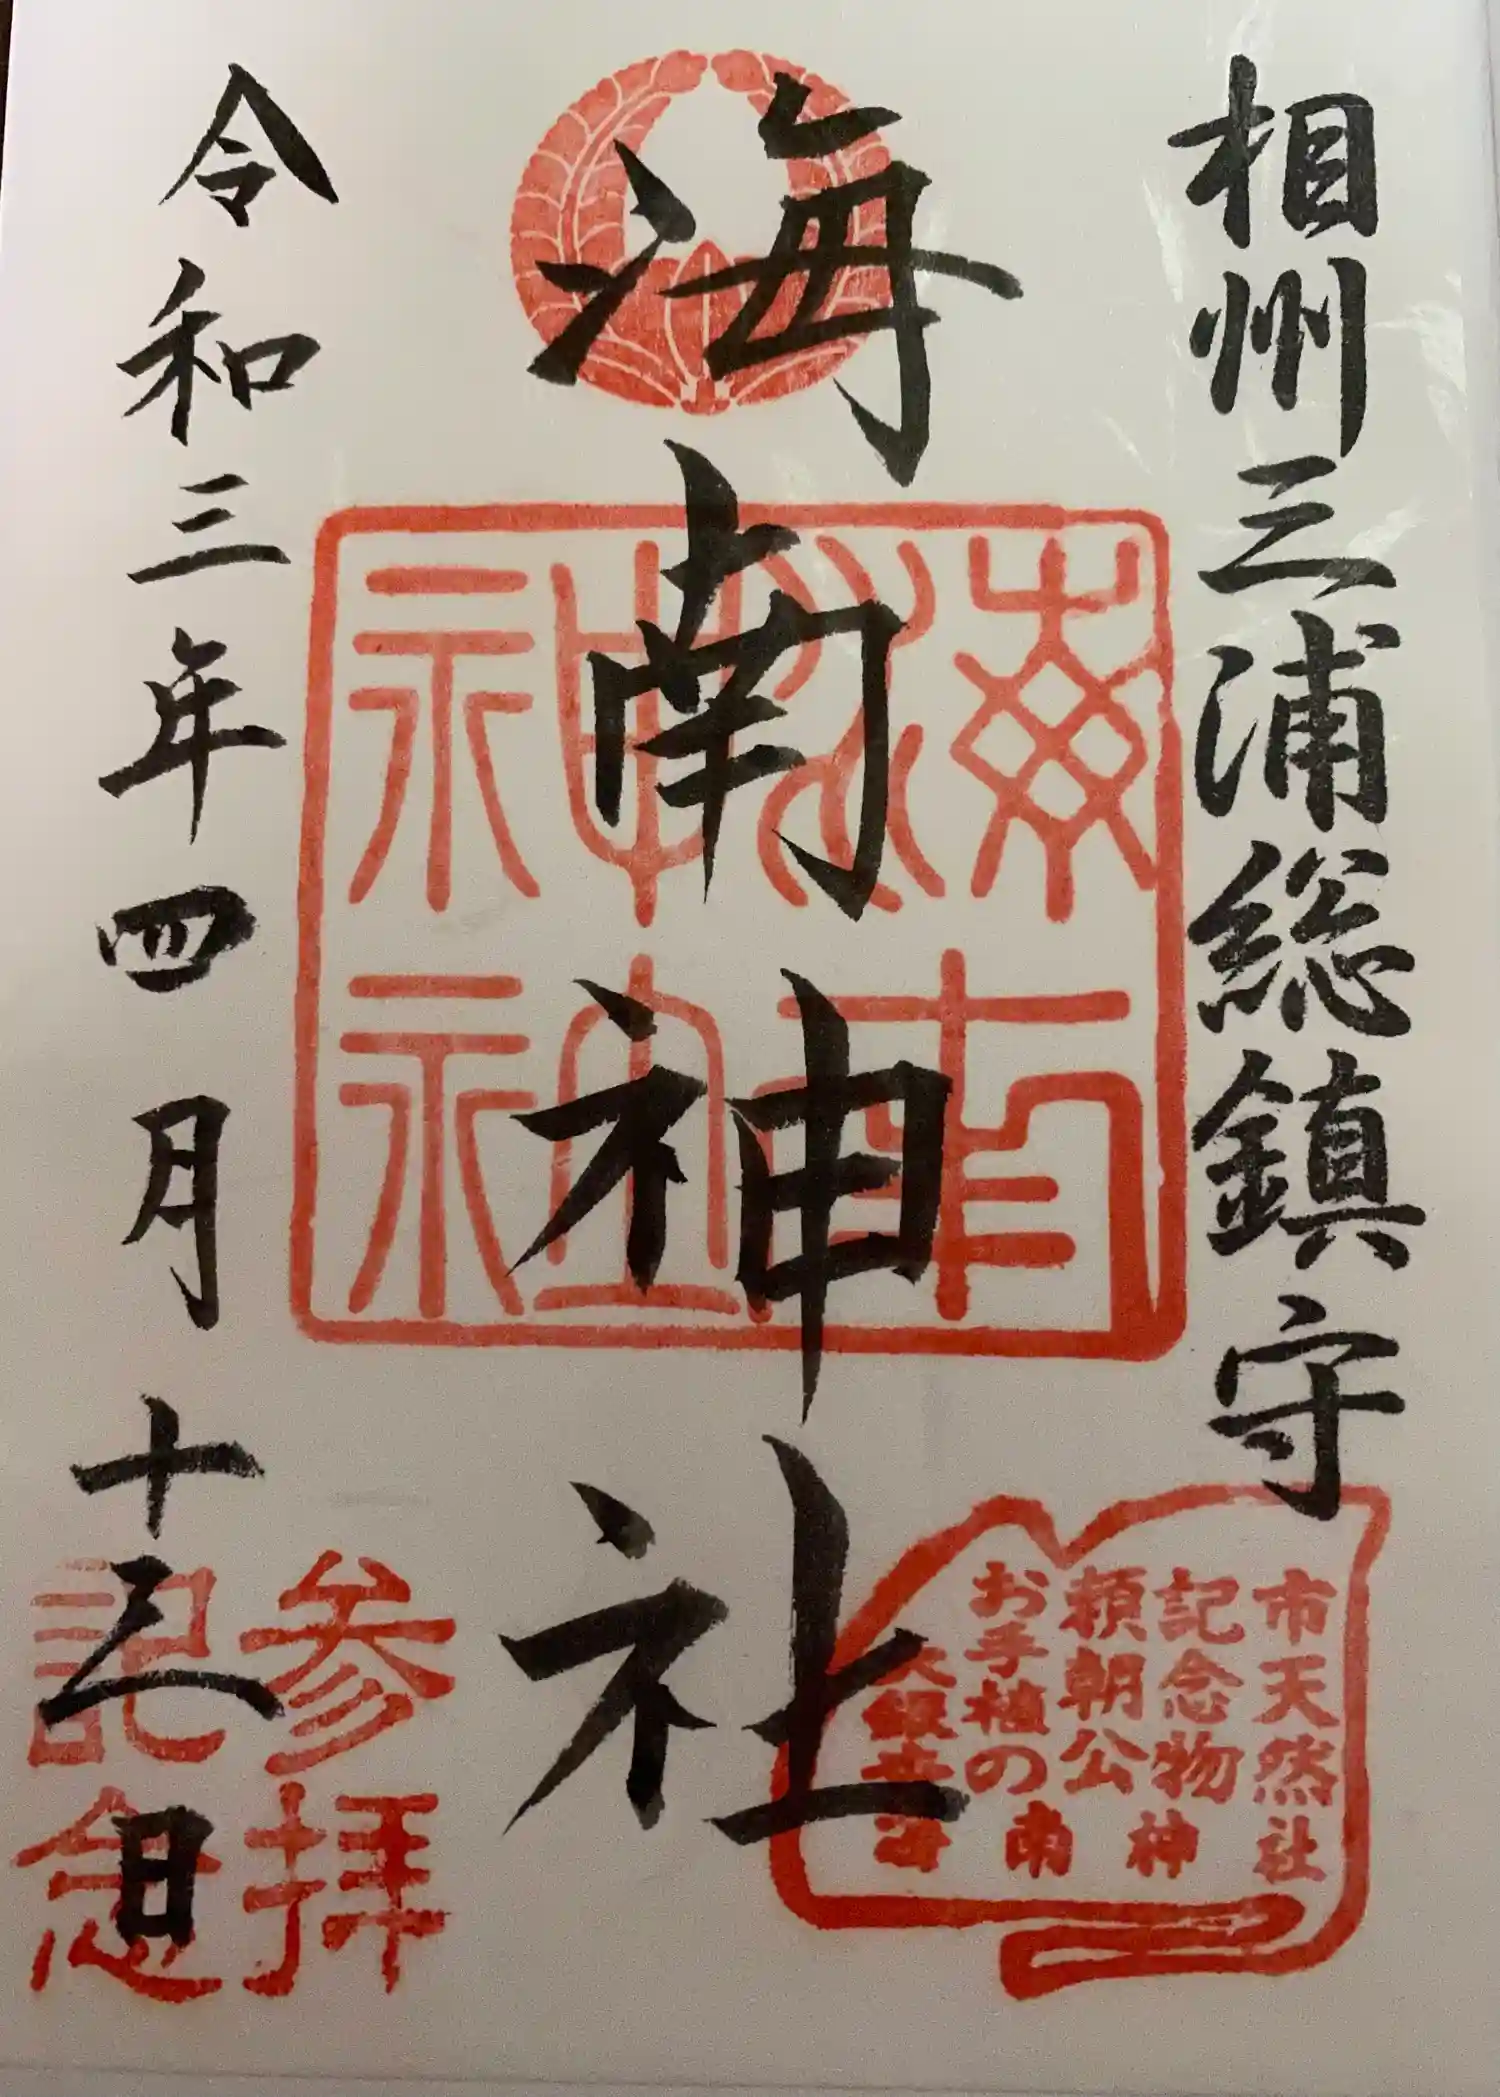 相州三浦総鎮守
海南神社
海南神社
令和三年四月十三日
参拝
記念
市天然
記念物
頼朝公
お手植の
大銀杏
海南神社